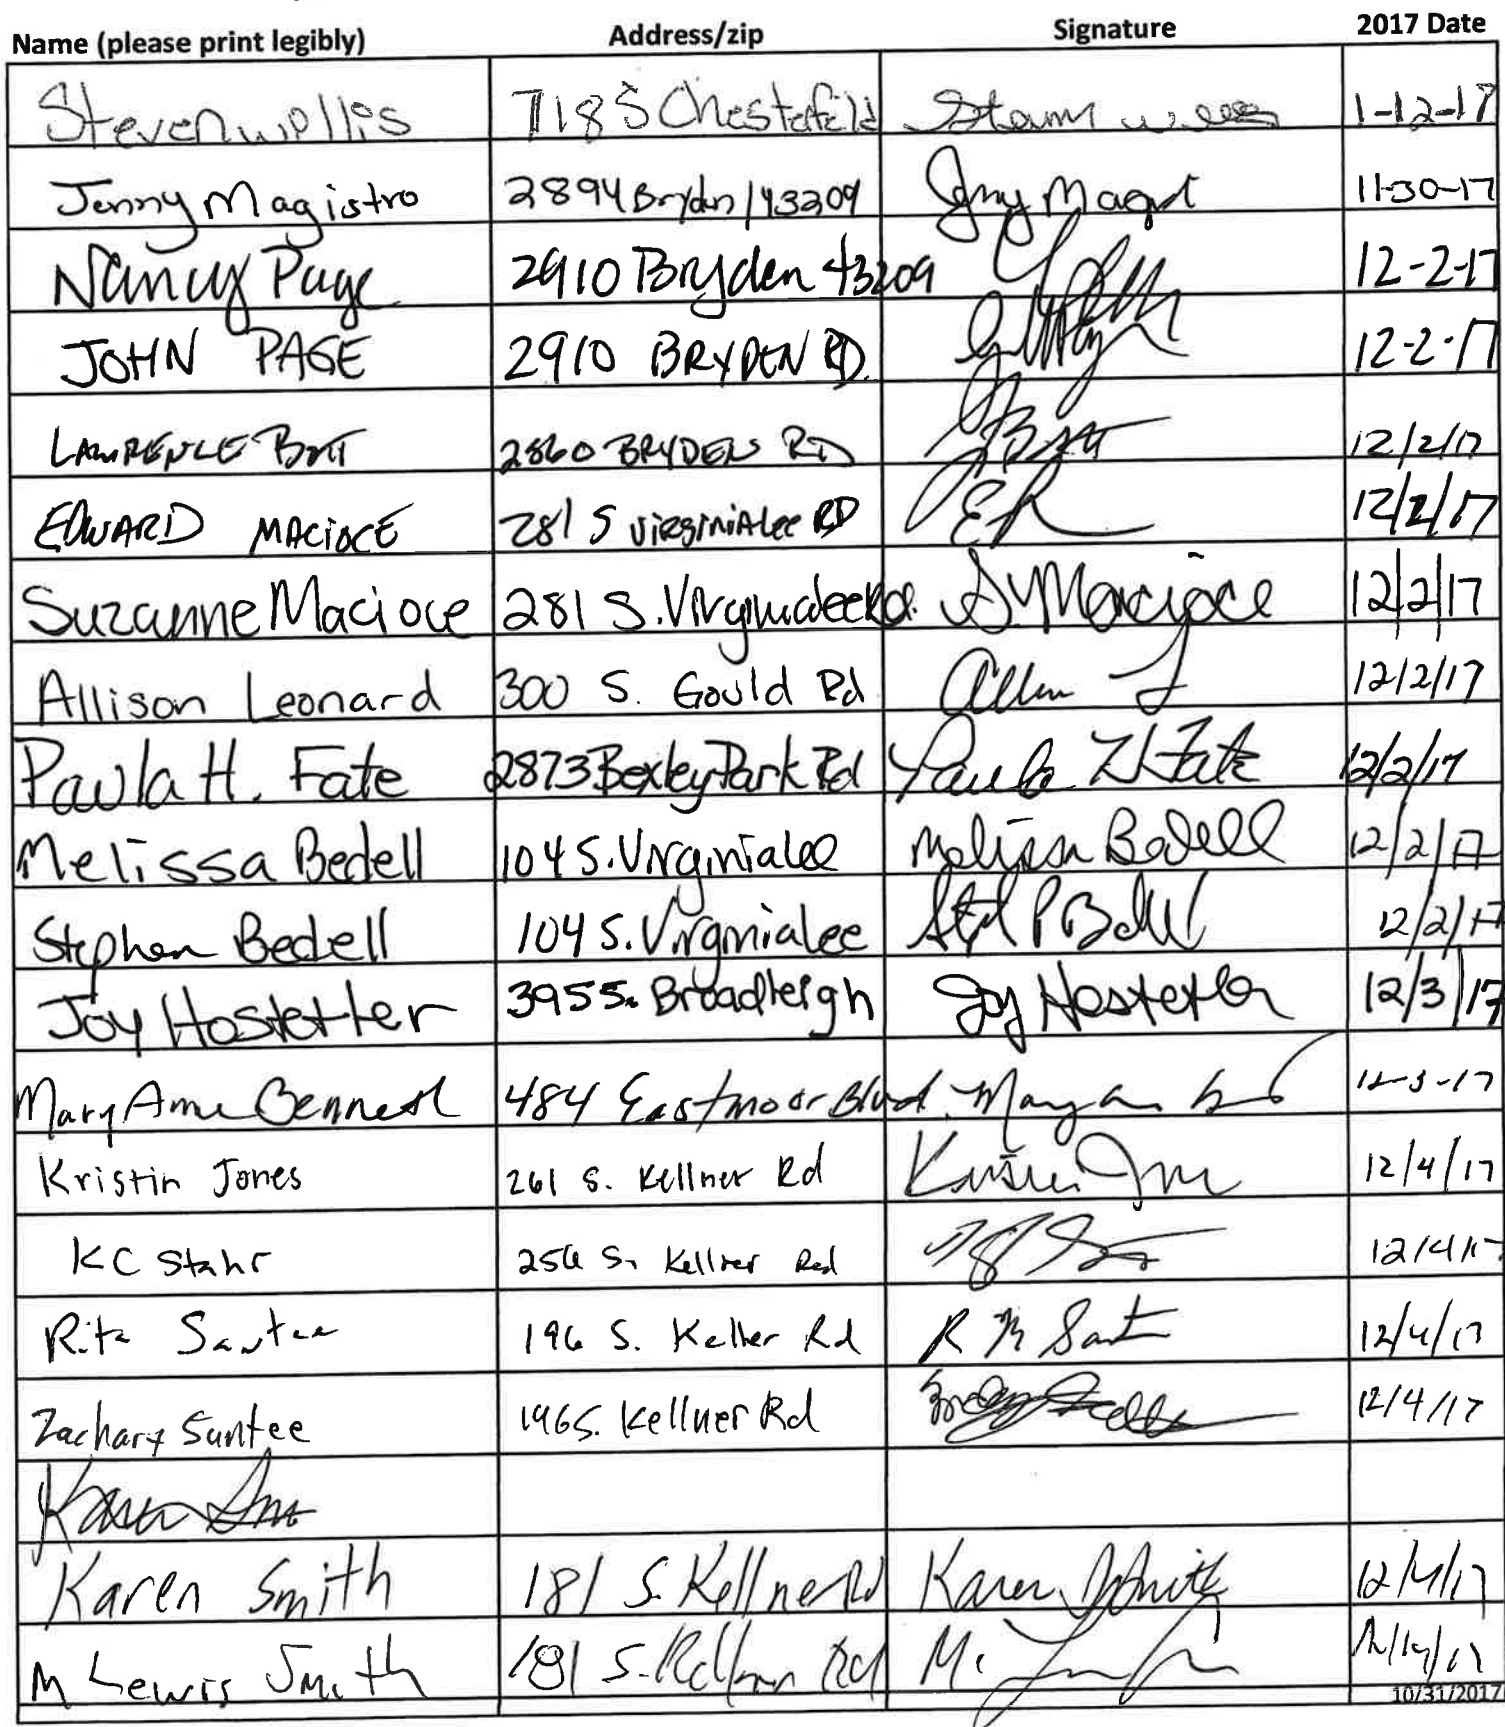 Name (please print legibly) Address/zip Signature 2017 Date
Steven willis 718 S Chesterfield 1-12-17
Jenny Magistro 2894 Bryden / 43209 Jenny Magist 11-30-17
Nancy Page 2910 Bryden 43209 12-2-17
JOHN PAGE 2910 BRYDEN RD. 12-2-17
LAWRENCE BOTT 2860 BRYDEN RD 12/2/17
EDWARD MACIOCE 281 S VIRGINIALee RD 12/2/17
Suzanne Macioce 281 S. Virginialee Rd. S Y Macioce 12/2/17
Allison Leonard 300 S. Gould Rd 12/2/17
Paula H. Fate 2873 Bexley Park Rd Paula H Fate 12/2/17
Melissa Bedell 104 S. Virginialee Melissa Bedell 12/2/17
Stephen Bedell 104 S. Virginialee 12/2/17
Joy Hostetter 395 S. Broadleigh Joy Hostetler 12/3/17
Mary Anne Bennett 484 Eastmoor Blvd. 12-3-17
Kristin Jones 261 S. Kellner Rd 12/4/17
KC Stahr 256 S. Kellner Rd 12/4/17
Rita Santee 196 S. Kellner Rd R M Santee 12/4/17
Zachary Santee 196 S. Kellner Rd 12/4/17
Karen
Karen Smith 181 S. Kellner Rd Karen Smith 12/4/17
M Lewis Smith 181 S. Kellner Rd M.
10/31/2017